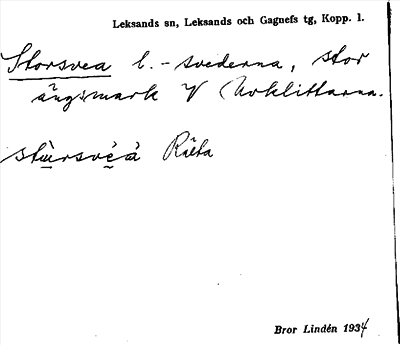 Leksands sn, Leksands och Gagnefs tg, Kopp. l.
Storsvea l. -svederna, stor
ängsmark V Norklittarna.
Rälta
Bror Lindén 1934